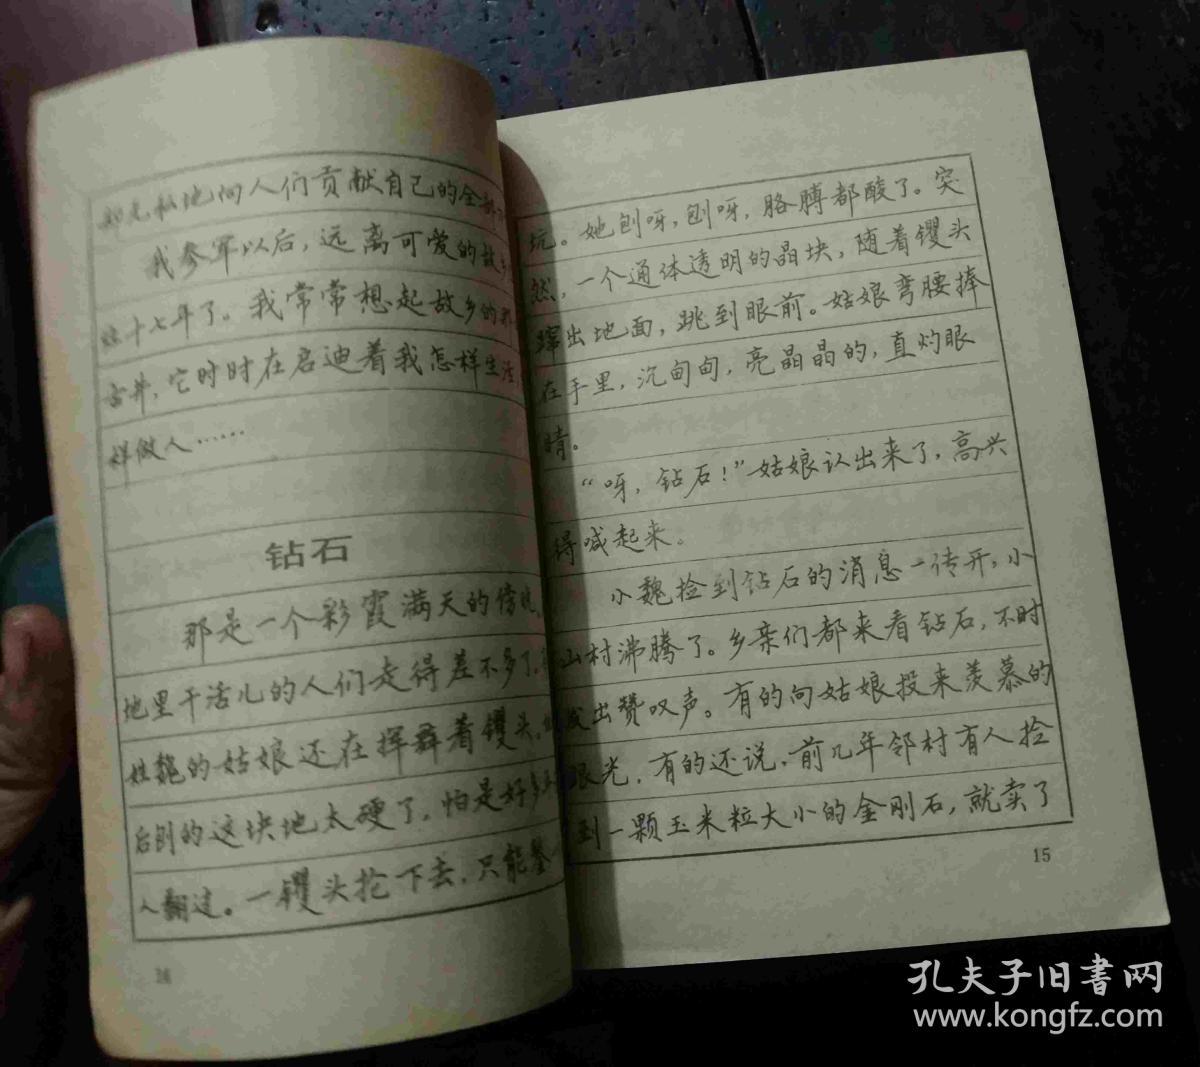 无私地向人们贡献自己的全部
我参军以后，远离可爱的故乡
十七年了。我常常想起故乡的
古井，它时时在启迪着我怎样生活，
样做人……
钻石
那是一个彩霞满天的傍晚，
地里干活儿的人们走得差不多了，
姓魏的姑娘还在挥舞着镢头。
后刨的这块地太硬了，怕是好多
人翻过。一镢头抡下去，只能
14
坑。她刨呀，刨呀，胳膊都酸了。突
然，一个通体透明的晶块，随着镢头
蹿出地面，跳到眼前。姑娘弯腰捧
在手里，沉甸甸，亮晶晶的，直灼眼
睛。
“呀，钻石！”姑娘认出来了，高兴
得喊起来。
小魏捡到钻石的消息一传开，小
山村沸腾了。乡亲们都来看钻石，不时
发出赞叹声。有的向姑娘投来羡慕的
眼光，有的还说，前几年邻村有人捡
到一颗玉米粒大小的金刚石，就卖了
15
孔夫子旧書网
www.kongfz.com